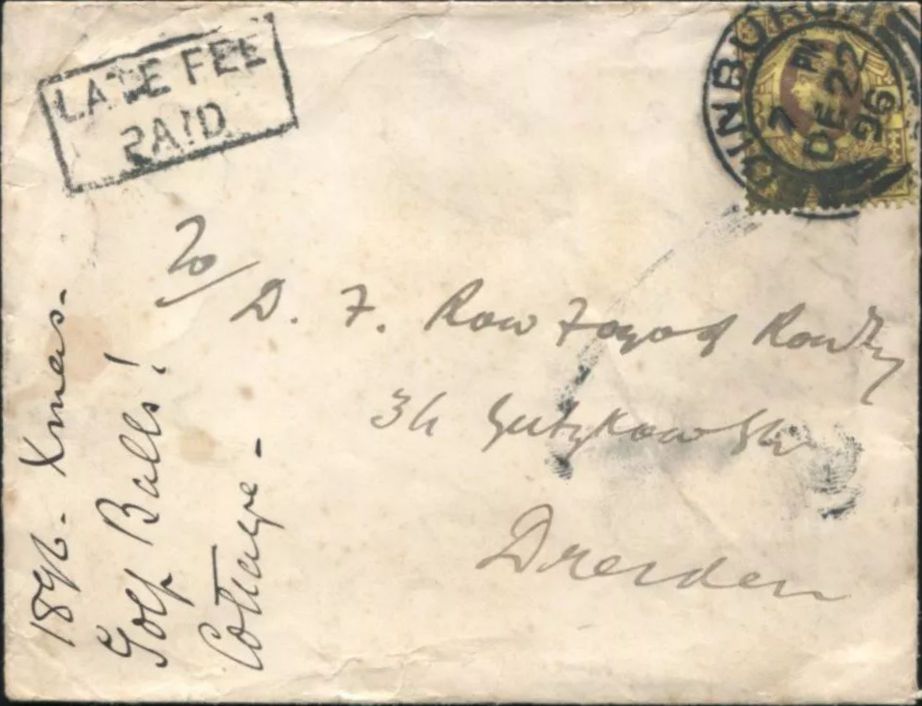 LATE FEE
PAID
EDINBURGH
7 PM
DE 22
96
To
D. F. Row
34 Gutzkow Str
Dresden
1896. Xmas.
Golf Balls!
Cottage